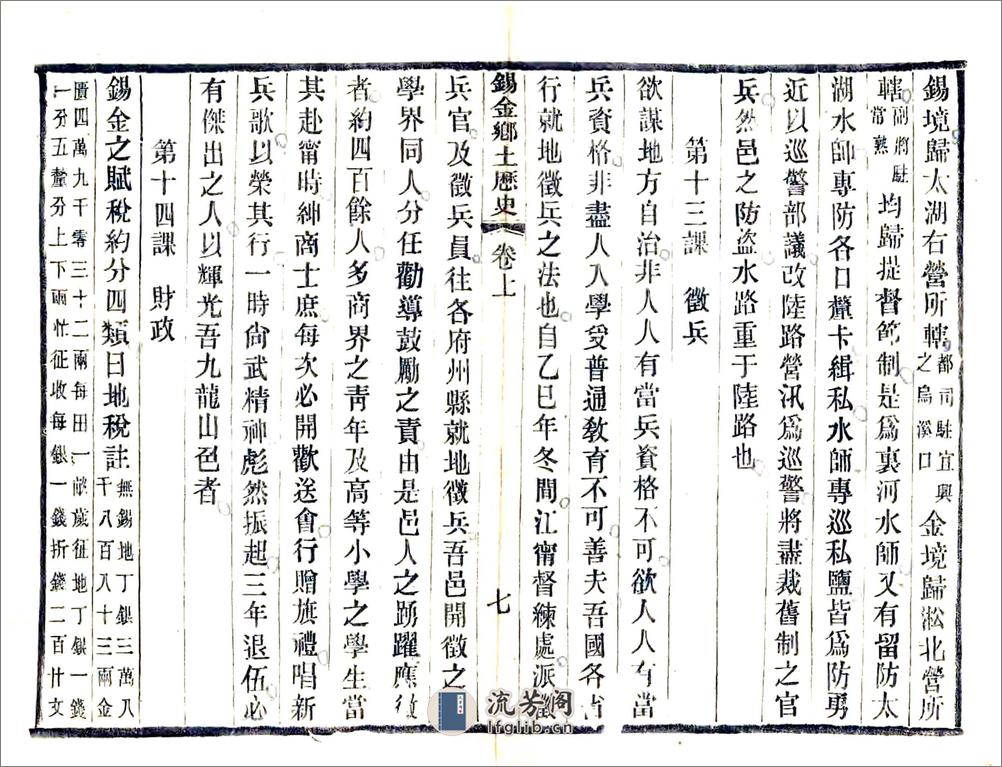 錫境歸太湖右營所轄都司駐宜興之烏溪口金境歸淞北營所
轄副將駐常熟均歸提督節制是爲裏河水師又有留防太
湖水師專防各口釐卡緝私水師專巡私鹽皆爲防勇
近以巡警部議改陸路營汛爲巡警將盡裁舊制之官
兵然邑之防盜水路重于陸路也
第十三課 徵兵
欲謀地方自治非人人有當兵資格不可欲人人有當
兵資格非盡人入學受普通敎育不可善夫吾國各省
行就地徵兵之法也自乙巳年冬間江甯督練處派徵
錫金鄉土歷史 卷上 七
兵官及徵兵員往各府州縣就地徵兵吾邑開徵之
學界同人分任勸導鼓勵之責由是邑人之踴躍應徵
者約四百餘人多商界之靑年及高等小學之學生當
其赴甯時紳商士庶每次必開歡送會行贈旗禮唱新
兵歌以榮其行一時尙武精神彪然振起三年退伍必
有傑出之人以輝光吾九龍山色者
第十四課 財政
錫金之賦稅約分四類曰地稅註無錫地丁銀三萬八千八百八十三兩金
匱四萬九千零三十二兩每田一畝歲征地丁銀一錢
一分五釐分上下兩忙征收每銀一錢折錢二百廿文
流芳阁
lfglib.cn